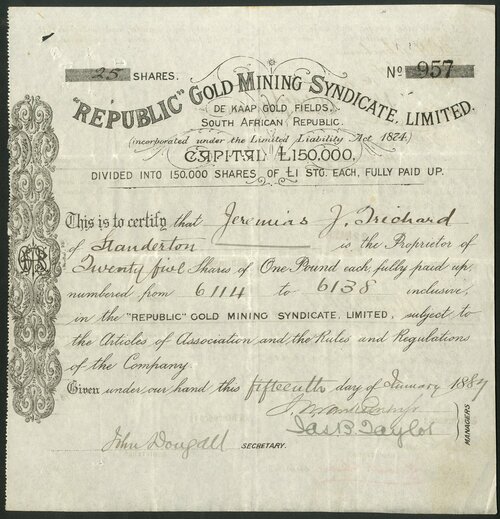 25 SHARES. No 957
"REPUBLIC" GOLD MINING SYNDICATE, LIMITED.
DE KAAP GOLD FIELDS,
SOUTH AFRICAN REPUBLIC.
(incorporated under the Limited Liability Act 1874)
CAPITAL £150,000,
DIVIDED INTO 150,000 SHARES OF £1 STG. EACH, FULLY PAID UP.
This is to certify that Jeremias J. Trichard
of Standerton is the Proprietor of
Twenty five Shares of One Pound each, fully paid up,
numbered from 6114 to 6138 inclusive,
in the "REPUBLIC" GOLD MINING SYNDICATE, LIMITED, subject to
the Articles of Association and the Rules and Regulations
of the Company.
Given under our hand this fifteenth day of January 1887
Jas B. Taylor
MANAGERS
John Dougall SECRETARY.